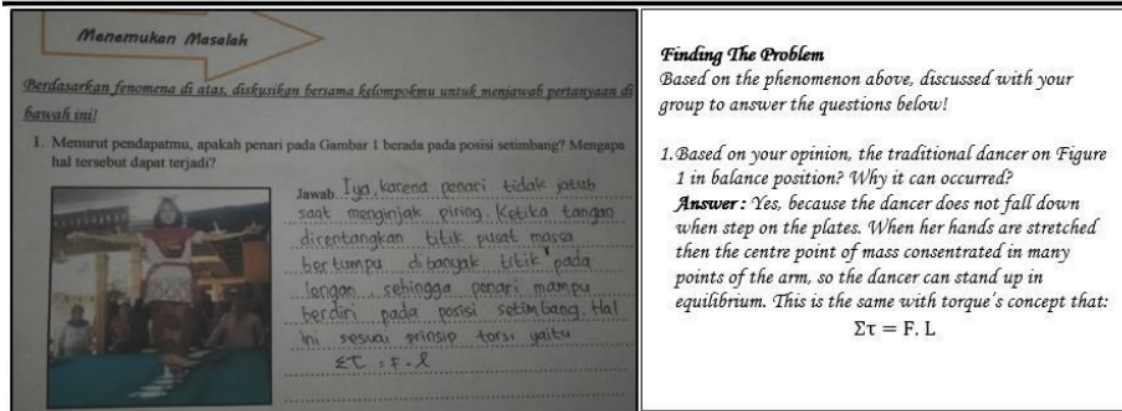 Menemukan Masalah
Berdasarkan fenomena di atas, diskusikan bersama kelompokmu untuk menjawab pertanyaan di
bawah ini!
1. Menurut pendapatmu, apakah penari pada Gambar 1 berada pada posisi setimbang? Mengapa
hal tersebut dapat terjadi?
Jawab Iya, karena penari tidak jatuh
saat menginjak piring. Ketika tangan
direntangkan titik pusat massa
bertumpu dibanyak titik pada
lengan, sehingga penari mampu
berdiri pada posisi setimbang. Hal
ini sesuai prinsip torsi yaitu
Στ = F . l
Finding The Problem
Based on the phenomenon above, discussed with your
group to answer the questions below!
1. Based on your opinion, the traditional dancer on Figure
1 in balance position? Why it can occurred?
Answer : Yes, because the dancer does not fall down
when step on the plates. When her hands are stretched
then the centre point of mass consentrated in many
points of the arm, so the dancer can stand up in
equilibrium. This is the same with torque's concept that:
Στ = F. L